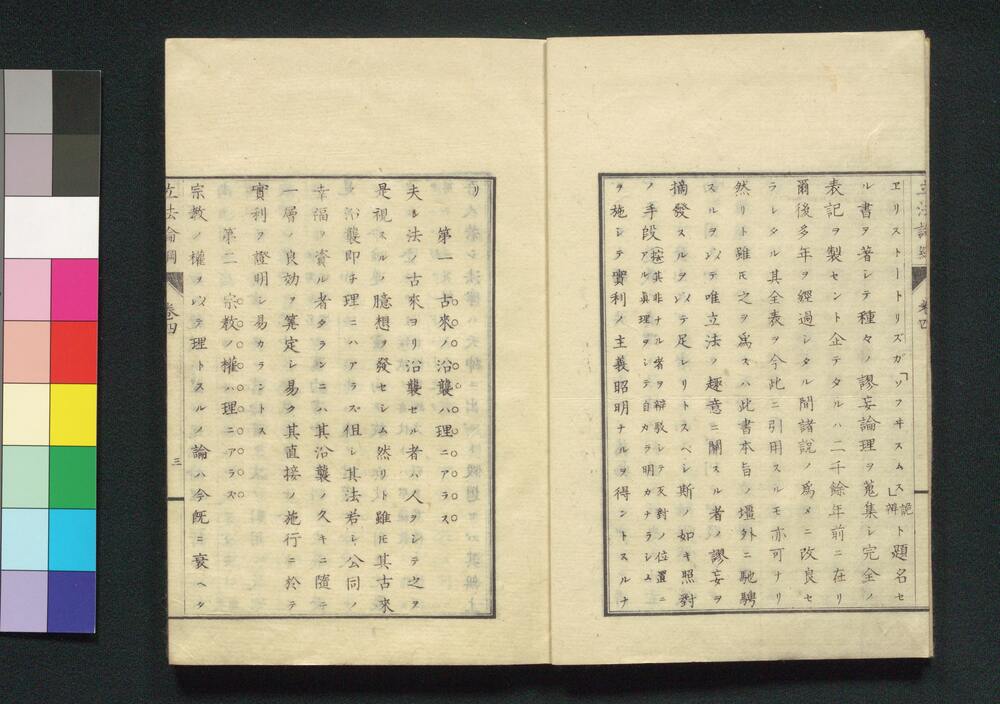 ヱリストートリズガ「ソフヰスムス詭辨」ト題名セ
ル書ヲ著シテ種々ノ謬妄論理ヲ蒐集シ完全ノ
表記ヲ製セント企テタルハ二千餘年前ニ在リ
爾後多年ヲ經過シタル間諸説ノ爲メニ改良セ
ラレタル其全表ヲ今此ニ引用スルモ亦可ナリ
然リト雖モ之ヲ爲スハ此書本旨ノ壃外ニ馳騁
スルヲ以テ唯立法ノ趣意ニ關スル者ノ謬妄ヲ
摘發スルヲ以テ足レリトスベシ斯ノ如キ照對
ノ手段(按其非ナル者ヲ辯駁シテ反對ノ位置ニアル眞理ヲシテ自カラ明カナラシム
ヲ施シテ實利ノ主義昭明ナルヲ得ントスルナ
リ
第一 古來ノ沿襲ハ理ニアラス
夫レ法ノ古來ヨリ沿襲セル者ハ人ヲシテ之ヲ
是視スルノ臆想ヲ發セシム然リト雖モ其古來
ノ沿襲即チ理ニハアラズ但シ其法若シ公同ノ
幸福ヲ資ル者タランニハ其沿襲ノ久キニ隨テ
一層ノ良効ヲ筭定シ易ク其直接ノ施行ニ於テ
實利ヲ證明シ易カラントス
第二 宗教ノ權ハ理ニアラズ
宗教ノ權ヲ以テ理トスルノ論ハ今既ニ衰ヘタ
立法論綱 卷四 三